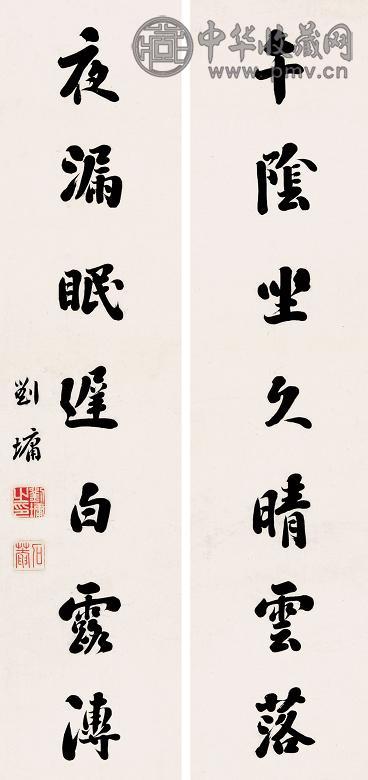 中华收藏网
www.pmv.cn
午陰坐久晴雲落
夜漏眠遲白露漙
劉墉
劉墉之印
石菴